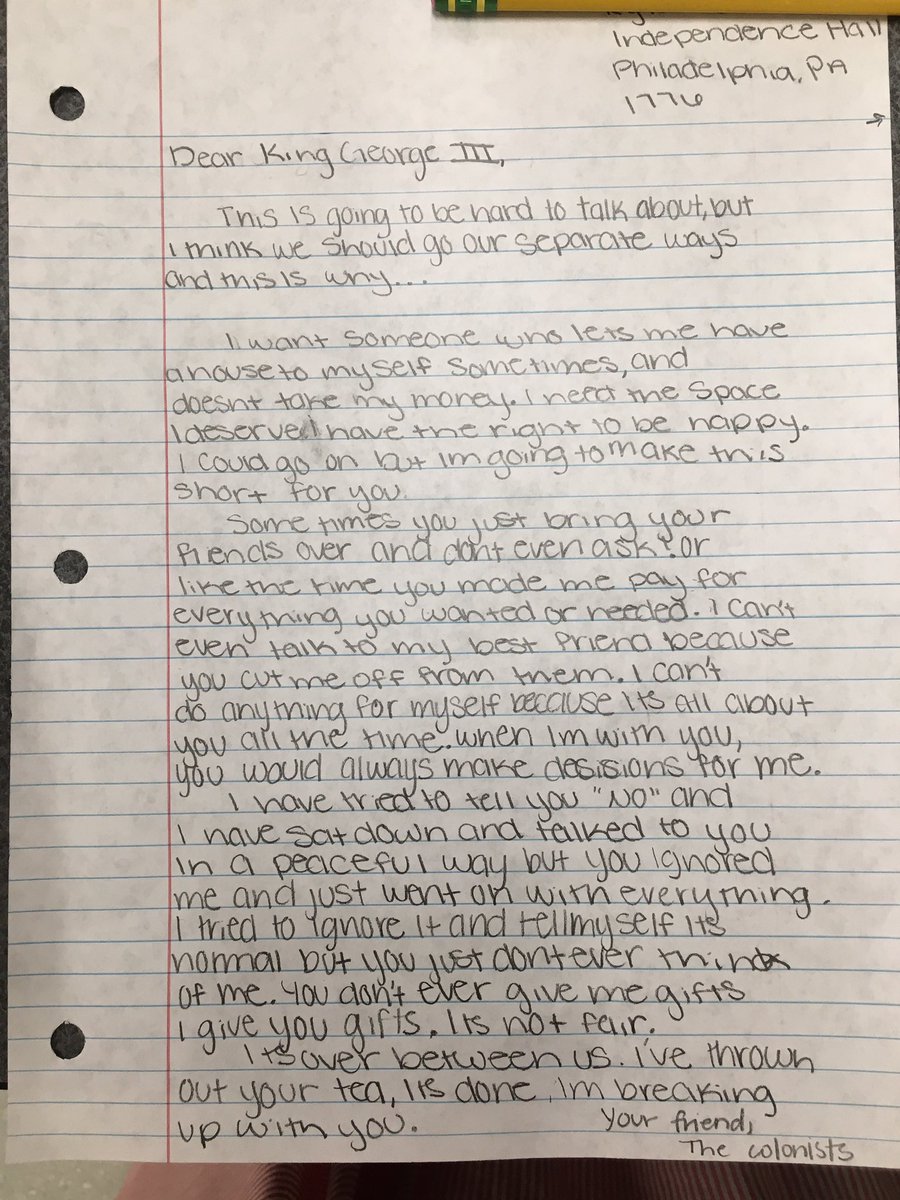 Independence Hall
Philadelphia, PA
1776
Dear King George III,
This is going to be hard to talk about, but
I think we should go our separate ways
and this is why...
I want someone who lets me have
a house to myself sometimes, and
doesnt take my money. I need the space
I deserve I have the right to be happy.
I could go on but im going to make this
short for you.
Sometimes you just bring your
friends over and dont even ask? or
like the time you made me pay for
everything you wanted or needed. I can't
even talk to my best friend because
you cut me off from them. I can't
do anything for myself because its all about
you all the time. when Im with you,
you would always make desisions for me.
I have tried to tell you "NO" and
I have sat down and talked to you
in a peaceful way but you ignored
me and just went on with everything.
I tried to ignore it and tell myself its
normal but you just dont ever think
of me. You don't ever give me gifts
I give you gifts. Its not fair.
Its over between us. I've thrown
out your tea, Its done. Im breaking
up with you.
Your friend,
The colonists